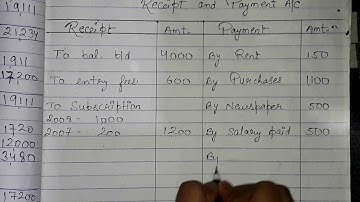 Receipt and Payment A/c
Receipt Amt. Payment Amt.
To bal. b/d 4,000 By Rent 150
To entry fees 600 By Purchases 1,100
To Subscription By Newspaper 500
2008 - 1,000
2007 - 200 1,200 By Salary paid 500
By
19111
21,234
1911
17200
19111
1720
12000
3480
17200